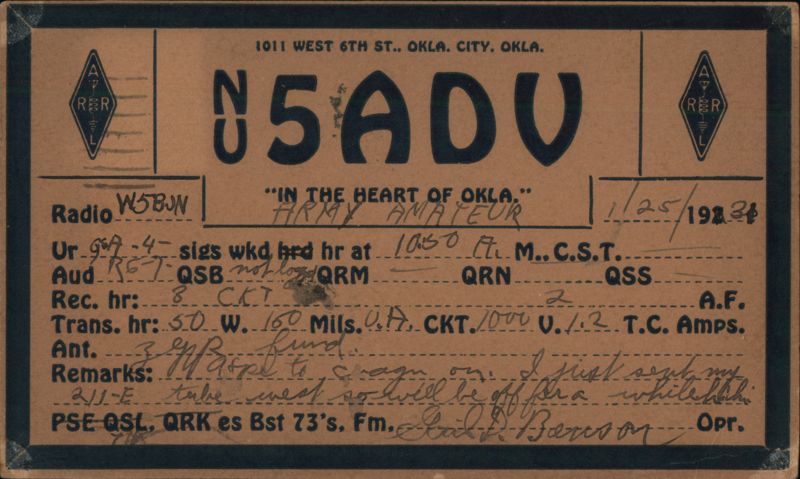 1011 WEST 6TH ST., OKLA. CITY, OKLA.
A R R L
NU 5ADV
A R R L
"IN THE HEART OF OKLA."
ARMY AMATEUR
Radio W5BJN 1/25/1931
Ur 9&A -4- sigs wkd hrd hr at 10:50 A. M.. C.S.T.
Aud R5-7 QSB not QRM — QRN QSS
Rec. hr: 8 CKT 2 A.F.
Trans. hr: 50 W. 160 Mils. U.A. CKT. 1000 V. 1.2 T.C. Amps.
Ant. fund.
Remarks: Hope to cuagn on. I just sent my
211-E tube west so will be off for a while
PSE QSL, QRK es Bst 73's, Fm. Benson Opr.